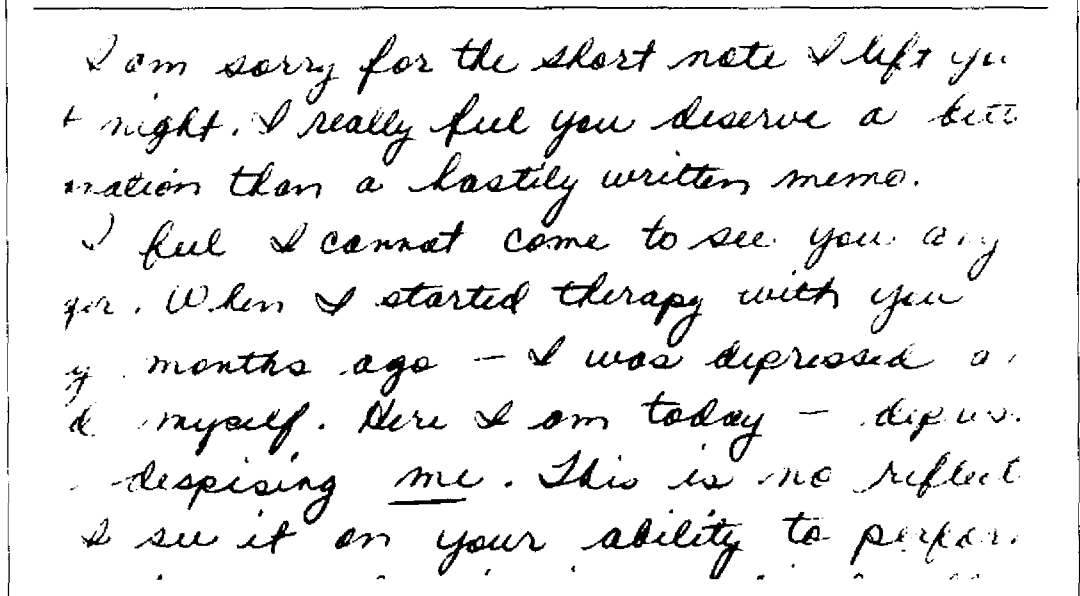 I am sorry for the short note I left
night. I really feel you deserve a
than a hastily written memo.
I feel I cannot come to see you any
. When I started therapy with you
months ago — I was depressed
myself. Here I am today —
despising me. This is no reflect
I see it on your ability to perfor